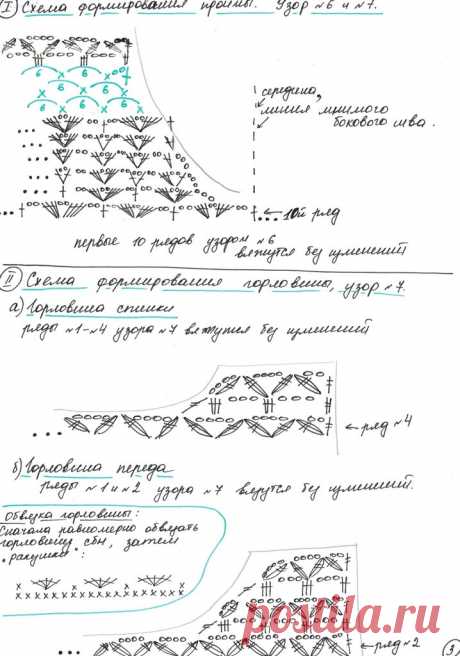 I Схема формирования проймы. Узор №6 и №7.
6 6 6
6 6
6 6 6
середина,
линия мнимого
бокового шва.
← 10й ряд
первые 10 рядов узором №6
вяжутся без изменений
II Схема формирования горловины, узор №7.
а) Горловина спинки
ряды №1-№4 узора №7 вяжутся без изменений
← ряд №4
б) Горловина переда
ряды №1 и №2 узора №7 вяжутся без изменений.
Обвязка горловины:
Сначала равномерно обвязать
горловину сбн, затем
"ракушки":
← ряд №2
postila.ru
3